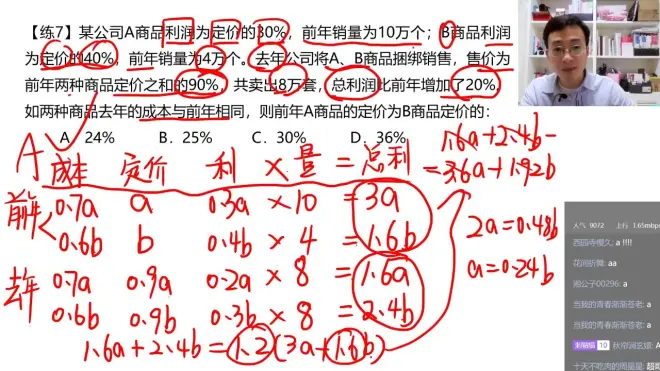 【练7】某公司A商品利润为定价的30%，前年销量为10万个；B商品利润
为定价的40%，前年销量为4万个。去年公司将A、B商品捆绑销售，售价为
前年两种商品定价之和的90%，共卖出8万套，总利润比前年增加了20%，
如两种商品去年的成本与前年相同，则前年A商品的定价为B商品定价的：
A．24% B．25% C．30% D．36%
A
成本 定价 利 × 量 = 总利
前年 0.7a a 0.3a × 10 = 3a
0.6b b 0.4b × 4 = 1.6b
去年 0.7a 0.9a 0.2a × 8 = 1.6a
0.6b 0.9b 0.3b × 8 = 2.4b
1.6a+2.4b = 1.2(3a+1.6b)
1.6a+2.4b=
=3.6a+1.92b
2a=0.48b
a=0.24b
人气 9072 上行 1.65mbps
西园寺樱久: a !!!!
花间折舞: aa
湘公子00296: a
当我的青春渐渐苍老: a
当我的青春渐渐苍老: a
10
十天不吃肉的周星星: